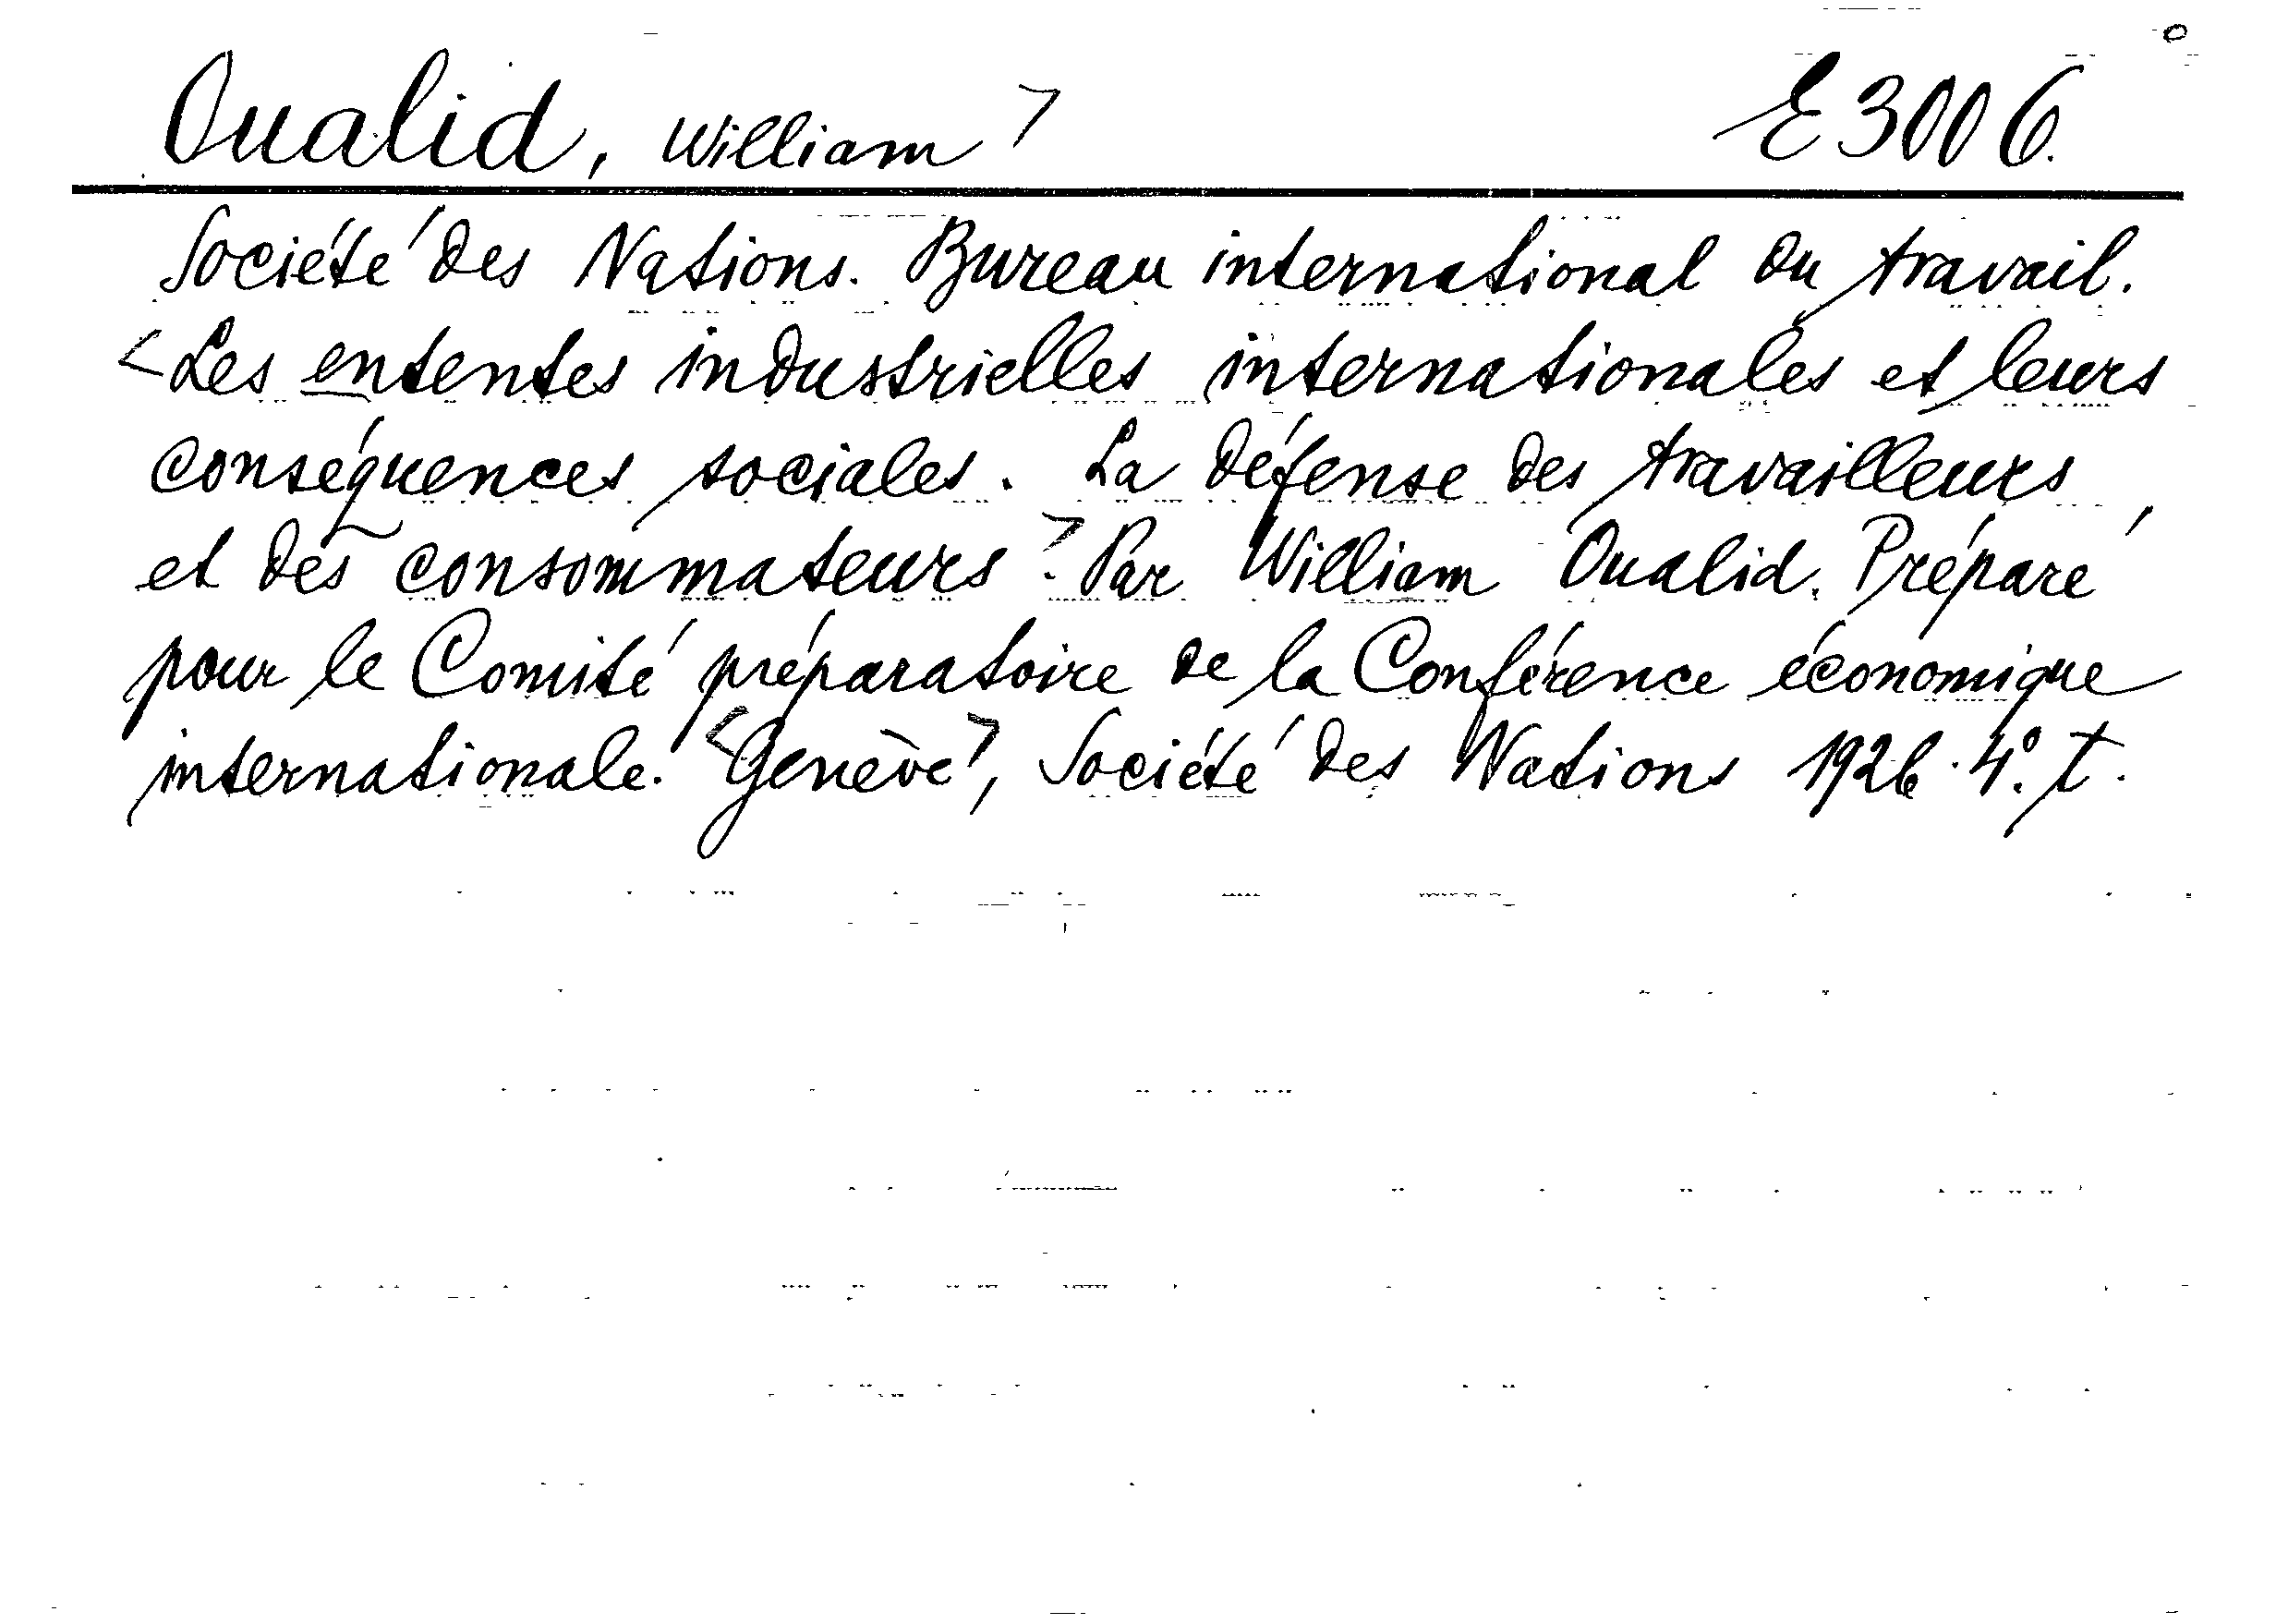 Oualid, William > E 3006.
Société des Nations. Bureau international du travail.
<Les ententes industrielles internationales et leurs
conséquences sociales. La défense des travailleurs
et des consommateurs>. Par William Oualid. Préparé
pour le Comité préparatoire de la Conférence économique
internationale. <Genève>, Société des Nations 1926. 4°. T.